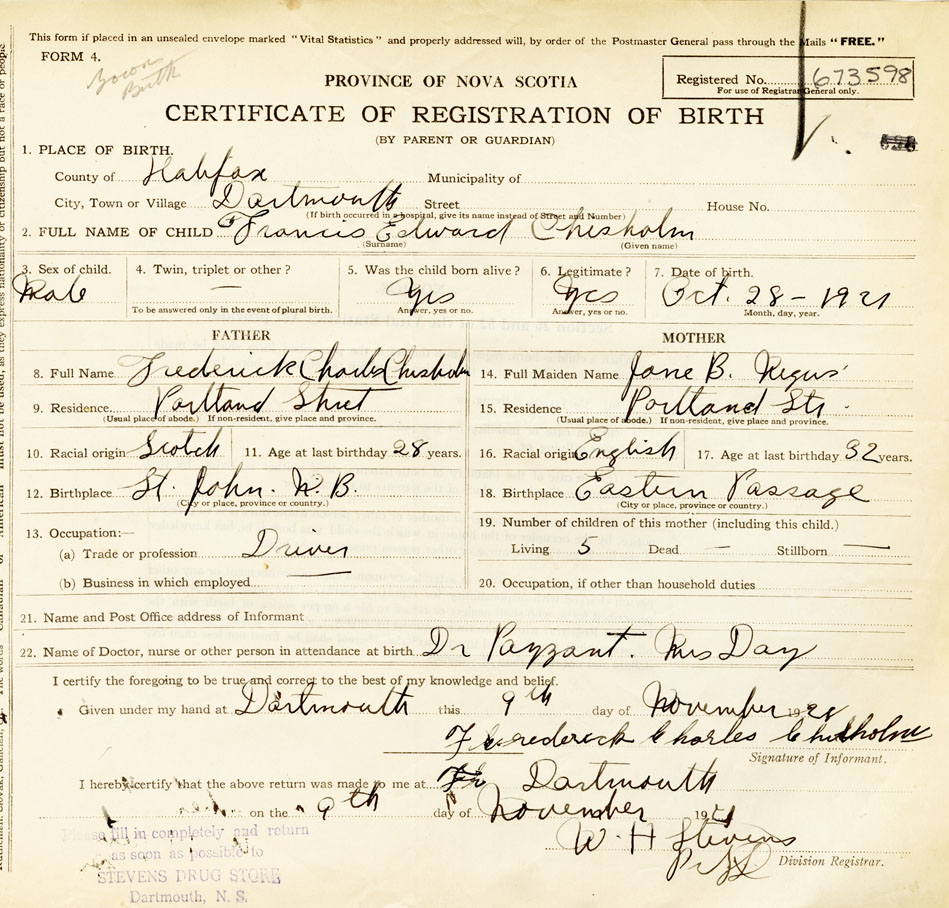 This form if placed in an unsealed envelope marked "Vital Statistics" and properly addressed will, by order of the Postmaster General pass through the Mails "FREE."
FORM 4.
Birth
PROVINCE OF NOVA SCOTIA
Registered No. 673598
For use of Registrar General only.
CERTIFICATE OF REGISTRATION OF BIRTH
(BY PARENT OR GUARDIAN)
1. PLACE OF BIRTH.
County of Halifax Municipality of
City, Town or Village Dartmouth Street House No.
(If birth occurred in a hospital, give its name instead of Street and Number)
2. FULL NAME OF CHILD Francis Edward Chisholm
(Surname) (Given name)
3. Sex of child. 4. Twin, triplet or other? 5. Was the child born alive? 6. Legitimate? 7. Date of birth.
Male — Yes Yes Oct. 28 - 1921
To be answered only in the event of plural birth. Answer, yes or no. Answer, yes or no. Month, day, year.
FATHER MOTHER
8. Full Name Frederick Charles Chisholm 14. Full Maiden Name Jane B.
9. Residence Portland Street 15. Residence Portland Str.
(Usual place of abode.) If non-resident, give place and province. (Usual place of abode.) If non-resident, give place and province.
10. Racial origin Scotch 11. Age at last birthday 28 years. 16. Racial origin English 17. Age at last birthday 32 years.
12. Birthplace St. John. N.B. 18. Birthplace Eastern Passage
(City or place, province or country.) (City or place, province or country.)
13. Occupation:— 19. Number of children of this mother (including this child.)
(a) Trade or profession Driver Living 5 Dead — Stillborn —
(b) Business in which employed 20. Occupation, if other than household duties
21. Name and Post Office address of Informant
22. Name of Doctor, nurse or other person in attendance at birth Dr Payzant. Mrs Day
I certify the foregoing to be true and correct to the best of my knowledge and belief.
Given under my hand at Dartmouth this 9th day of November 192
Frederick Charles Chisholm
Signature of Informant.
I hereby certify that the above return was made to me at Dartmouth
on the 9th day of November 1921
W. H Stevens
Division Registrar.
Please fill in completely and return
as soon as possible to
STEVENS DRUG STORE
Dartmouth, N. S.